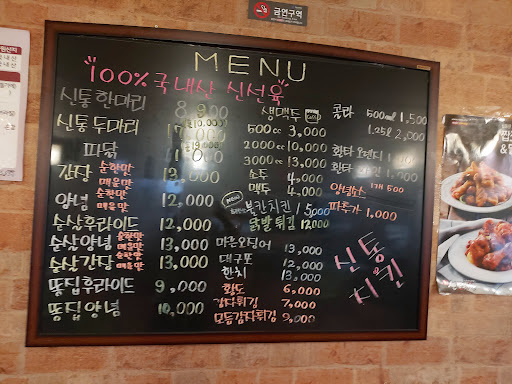 금연구역
MENU
100% 국내산 신선육
신통 한마리 8,900
(포장)
신통 두마리 17,000
파닭
간장 순한맛 매운맛 13,000
양념 순한맛 매운맛 12,000
순살후라이드 12,000
순살양념 순한맛 매운맛 13,000
순살간장 순한맛 매운맛 13,000
똥집후라이드 9,000
똥집양념 10,000
생맥주
500cc 3,000
2000cc 10,000
3000cc 13,000
소주 4,000
맥주 4,000
불칸치킨 15,000
닭발튀김 12,000
마른오징어 13,000
대구포 12,000
한치 13,000
황도 6,000
감자튀김 7,000
모듬감자튀김 9,000
콜라 500ml 1,500
1.25l 2,000
환타
환타
양념소스 1개 500
파추가 1,000
신통치킨